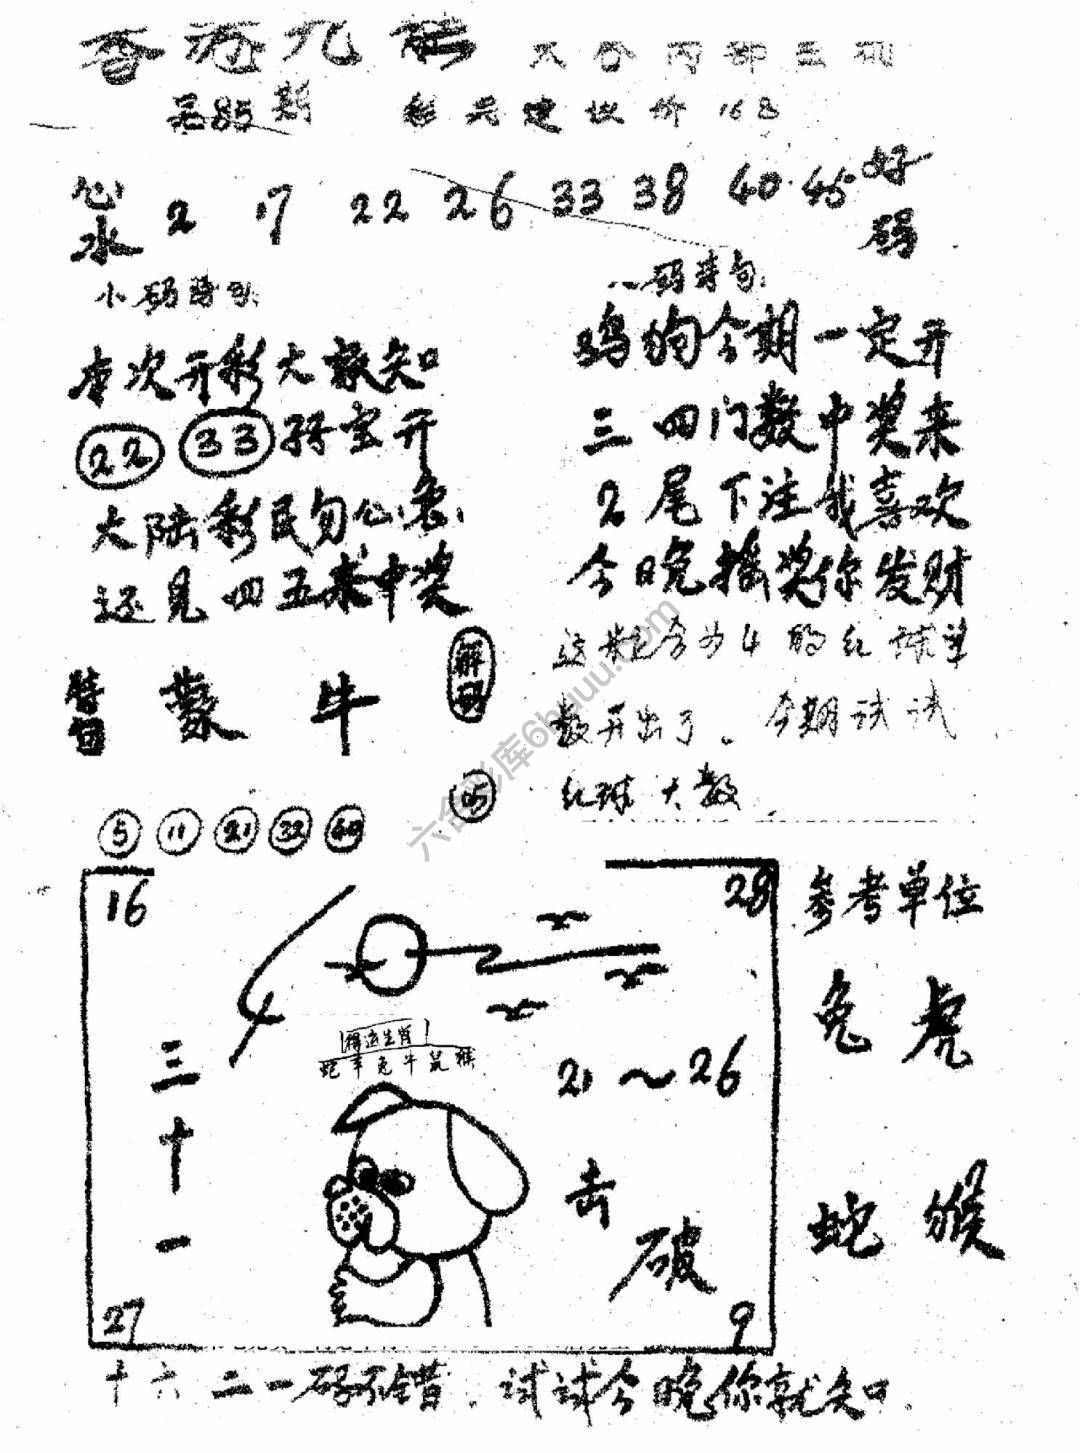 香港九龍 六合内部主刊
第85期
心水 2 17 22 26 33 38 40 45 好码
小码诗句: 八码诗句:
本次开彩大家知
22 33 孖宝开
大陆彩民勿公急
还见四五来中奖
鸡狗今期一定开
三四门数中奖来
2尾下注我喜欢
今晚摇奖你发财
这期合为4的红球单
数开出了。今期试试
红球大数
特句 蒙 牛 解码
5 11 21 32 49 05
16 28
参考单位
兔 虎
蛇 猴
得过生肖
蛇羊兔牛鼠猴
三十一
21～26
击破
27 9
十六二一码不错.试试今晚你就知.
六合彩库6huuu.com